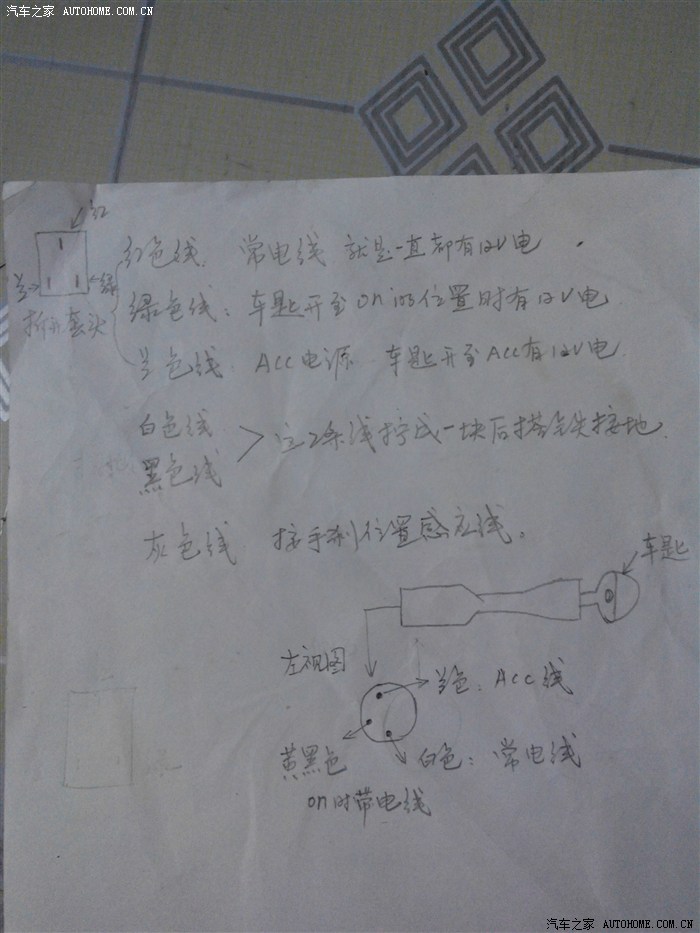 汽车之家 AUTOHOME.COM.CN
红
兰
绿
拆开套头
红色线 常电线 就是一直都有12V电
绿色线:车匙开至on 位置时有12V电
兰色线 Acc电源 车匙开至Acc有12V电
白色线
黑色线
这2条线拧成一块后搭铁接地
灰色线 接手刹位置感应线。
车匙
左视图
兰色:Acc线
黄黑色
白色:常电线
on时带电线
汽车之家 AUTOHOME.COM.CN